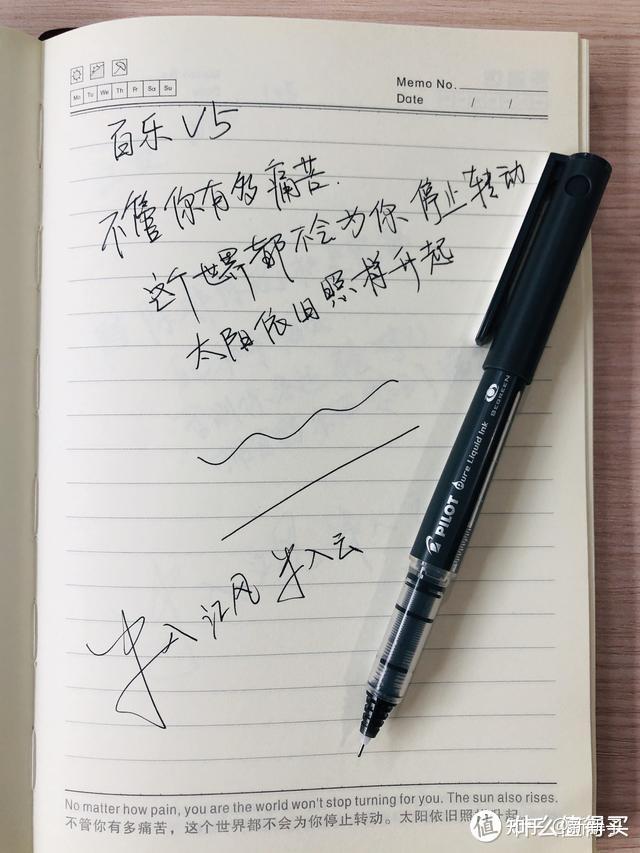 Mo Tu We Th Fr Sa Su
Memo No.
Date / /
百乐 V5
不管你有多痛苦.
这个世界都不会为你停止转动
太阳依旧照样升起
半入江风半入云
SEGREEN
PILOT Pure Liquid Ink
No matter how pain, you are the world won't stop turning for you. The sun also rises.
不管你有多痛苦，这个世界都不会为你停止转动。太阳依旧照样升起